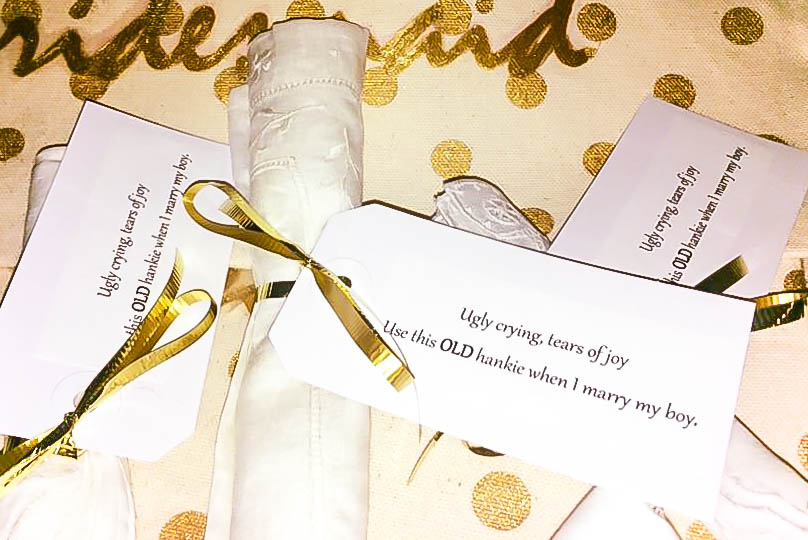 ridesmaid
Ugly crying, tears of joy
this OLD hankie when I marry my boy.
Ugly crying, tears of joy
Use this OLD hankie when I marry my boy.
Ugly crying, tears of joy
this OLD hankie when I marry my boy.